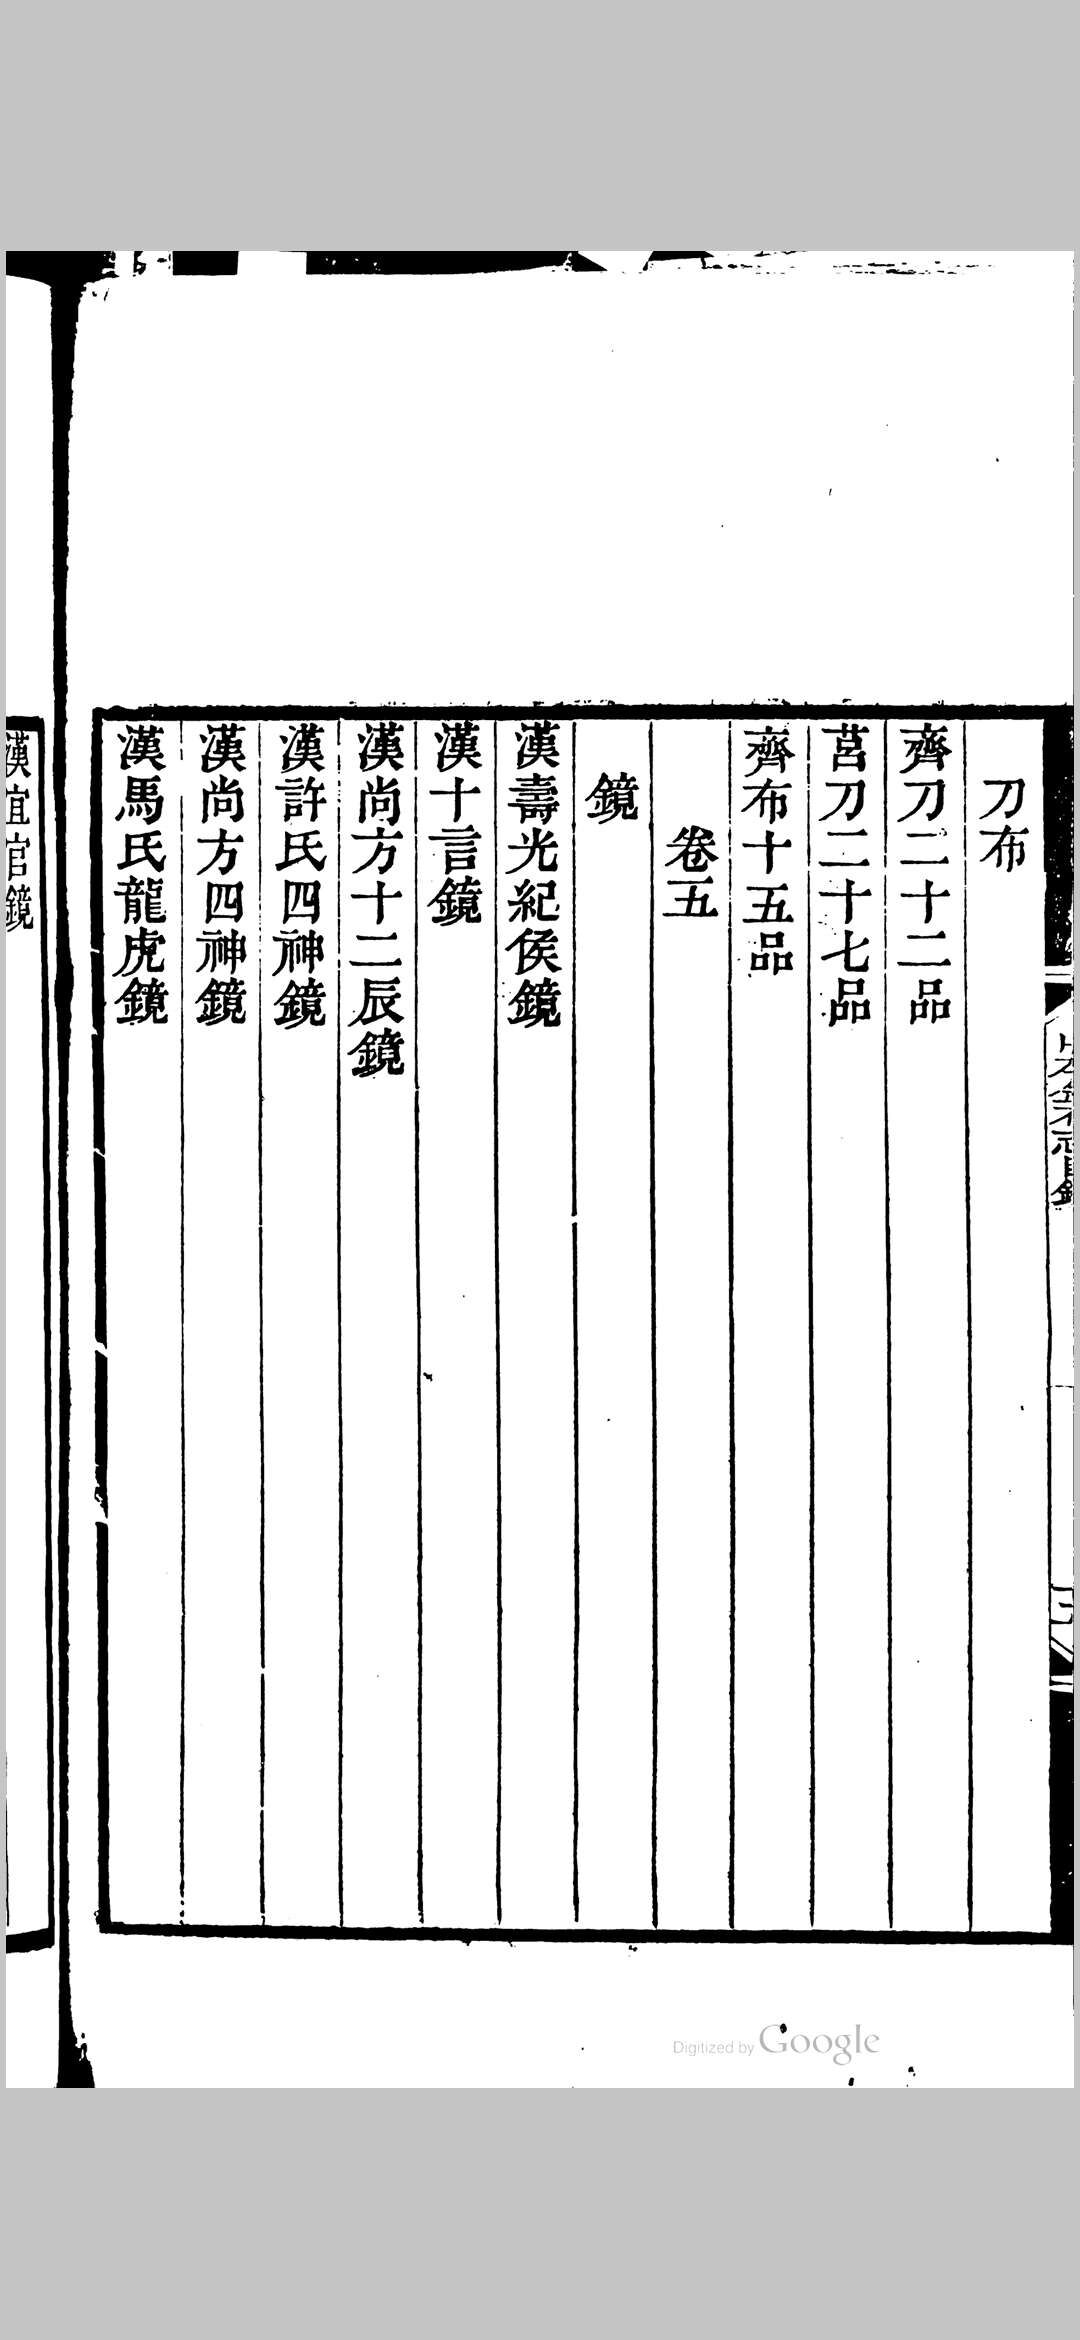 刀布
齊刀二十二品
莒刀二十七品
齊布十五品
卷五
鏡
漢壽光紀侯鏡
漢十言鏡
漢尚方十二辰鏡
漢許氏四神鏡
漢尚方四神鏡
漢馬氏龍虎鏡
漢宜官鏡
Digitized by Google